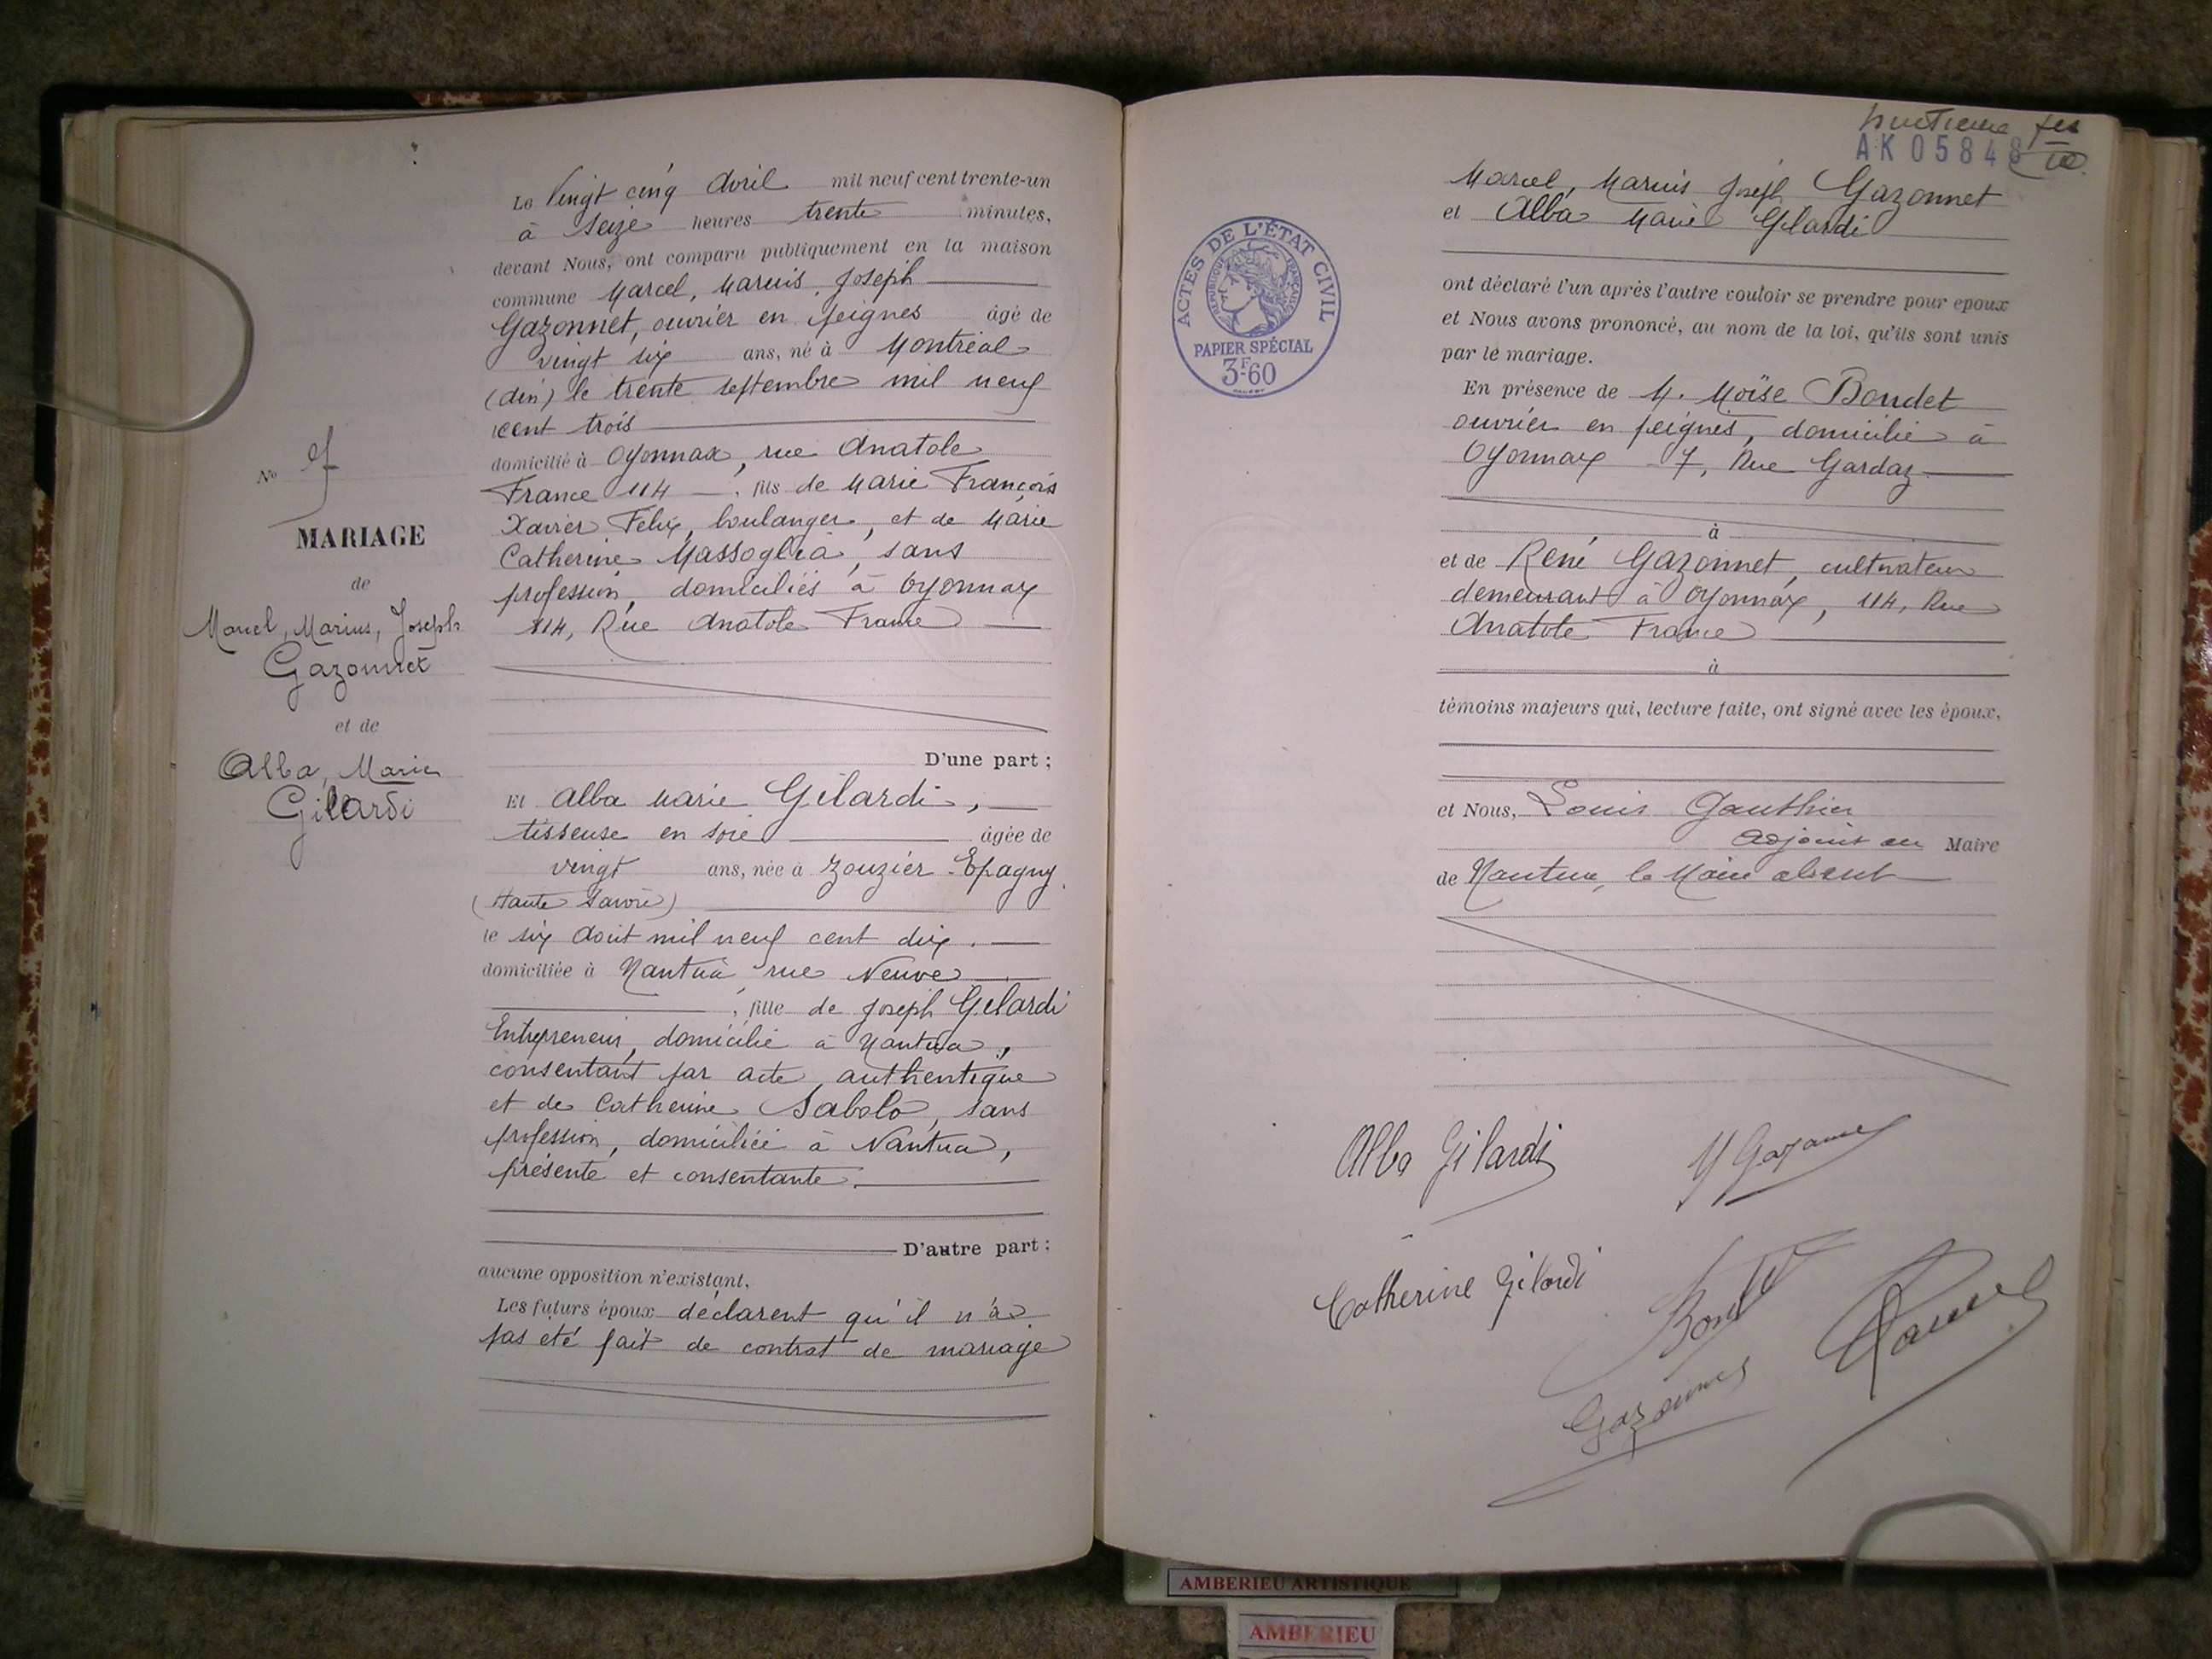 Le Vingt cinq Avril mil neuf cent trente-un
à seize heures trente minutes,
devant Nous, ont comparu publiquement en la maison
commune Marcel, Marius, Joseph
Gazonnet, ouvrier en peignes âgé de
vingt six ans, né à Montréal
(Ain) le trente septembre mil neuf
cent trois
domicilié à Oyonnax, rue Anatole
France 114, fils de Marie François
Xavier Felix, boulanger, et de Marie
Catherine Massoglia, sans
profession, domiciliés à Oyonnax
114, Rue Anatole France
No
MARIAGE
de
Marcel, Marius, Joseph
Gazonnet
et de
Alba, Marie
Gilardi
D'une part ;
Et Alba Marie Gilardi,
tisseuse en soie âgée de
vingt ans, née à Zouzier - Epagny
(Haute Savoie)
le six Août mil neuf cent dix.
domiciliée à Nantua, rue Neuve
, fille de Joseph Gilardi
Entrepreneur, domicilié à Nantua,
consentant par acte authentique
et de Catherine Sabolo, sans
profession, domiciliée à Nantua,
présente et consentante.
D'autre part ;
aucune opposition n'existant.
Les futurs époux déclarent qu'il n'a
pas été fait de contrat de mariage
huitième
AK 05848
Marcel, Marius Joseph Gazonnet
et Alba Marie Gilardi
ACTES DE L'ÉTAT CIVIL
RÉPUBLIQUE FRANÇAISE
PAPIER SPÉCIAL
3F60
ont déclaré l'un après l'autre vouloir se prendre pour époux
et Nous avons prononcé, au nom de la loi, qu'ils sont unis
par le mariage.
En présence de M. Moïse Boudet
ouvrier en peignes, domicilié à
Oyonnax 7, Rue Gardaz
à
et de René Gazonnet, cultivateur
demeurant à Oyonnax, 114, Rue
Anatole France
à
témoins majeurs qui, lecture faite, ont signé avec les époux,
et Nous, Louis Gauthier
Adjoint au Maire
de Nantua, le Maire absent
Alba Gilardi
M Gazonnet
Catherine Gilardi
Boudet
Gazonnet
AMBERIEU ARTISTIQUE
AMBERIEU